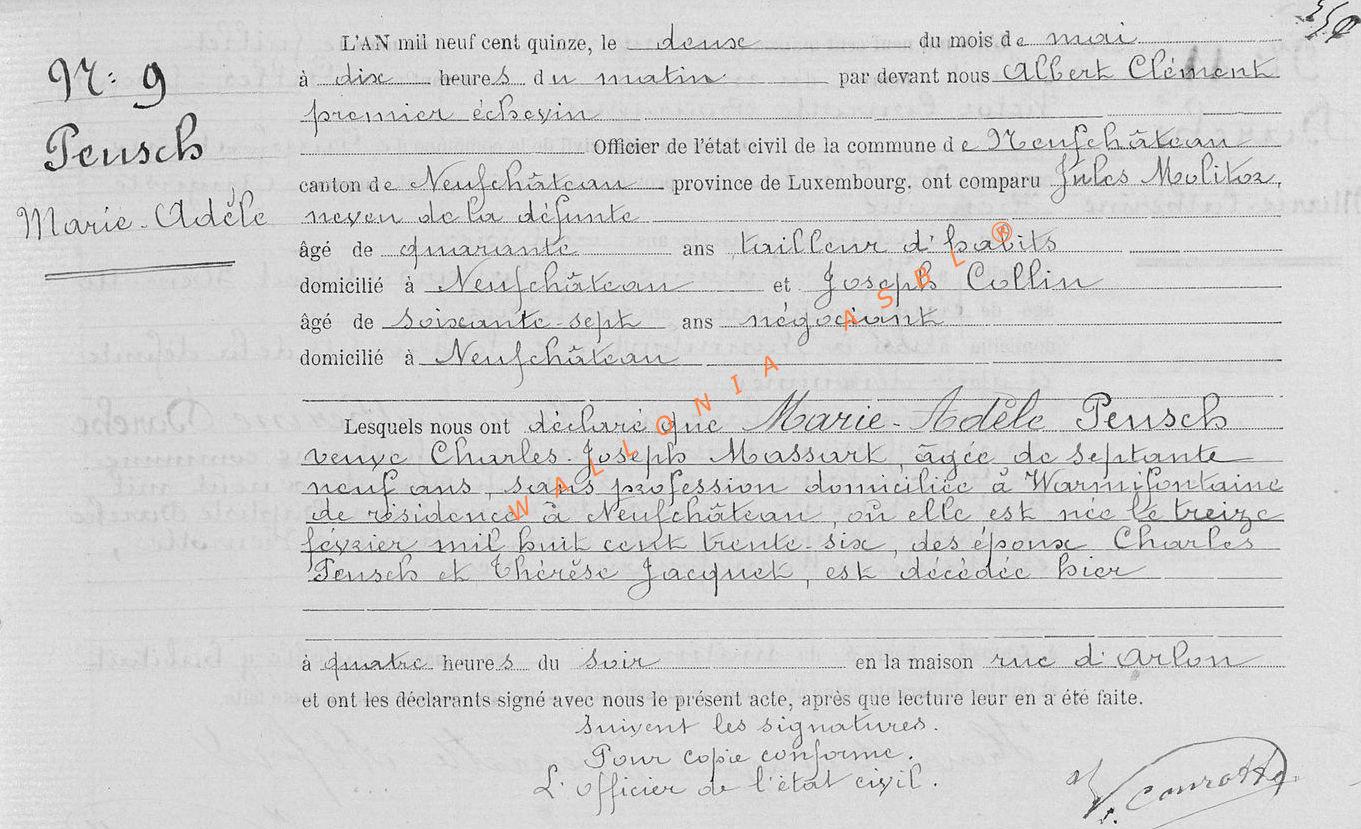 L'AN mil neuf cent quinze, le deux du mois de mai
N: 9
à dix heures du matin par devant nous Albert Clément
premier échevin
Pensch
Officier de l'état civil de la commune de Neufchâteau
canton de Neufchâteau province de Luxembourg. ont comparu Jules Molitor,
Marie-Adèle
neveu de la défunte
âgé de quarante ans tailleur d'habits
domicilié à Neufchâteau et Joseph Collin
âgé de soixante-sept ans négociant
domicilié à Neufchâteau
WALLONIA ASBL ®
Lesquels nous ont déclaré que Marie-Adèle Pensch
veuve Charles-Joseph Massart, âgée de septante
neuf ans, sans profession domiciliée à Warmifontaine
de résidence à Neufchâteau, où elle est née le treize
février mil huit cent trente-six, des époux Charles
Pensch et Thérèse Jacquet, est décédée hier
à quatre heures du soir en la maison rue d'Arlon
et ont les déclarants signé avec nous le présent acte, après que lecture leur en a été faite.
Suivent les signatures.
Pour copie conforme.
L'officier de l'état civil.